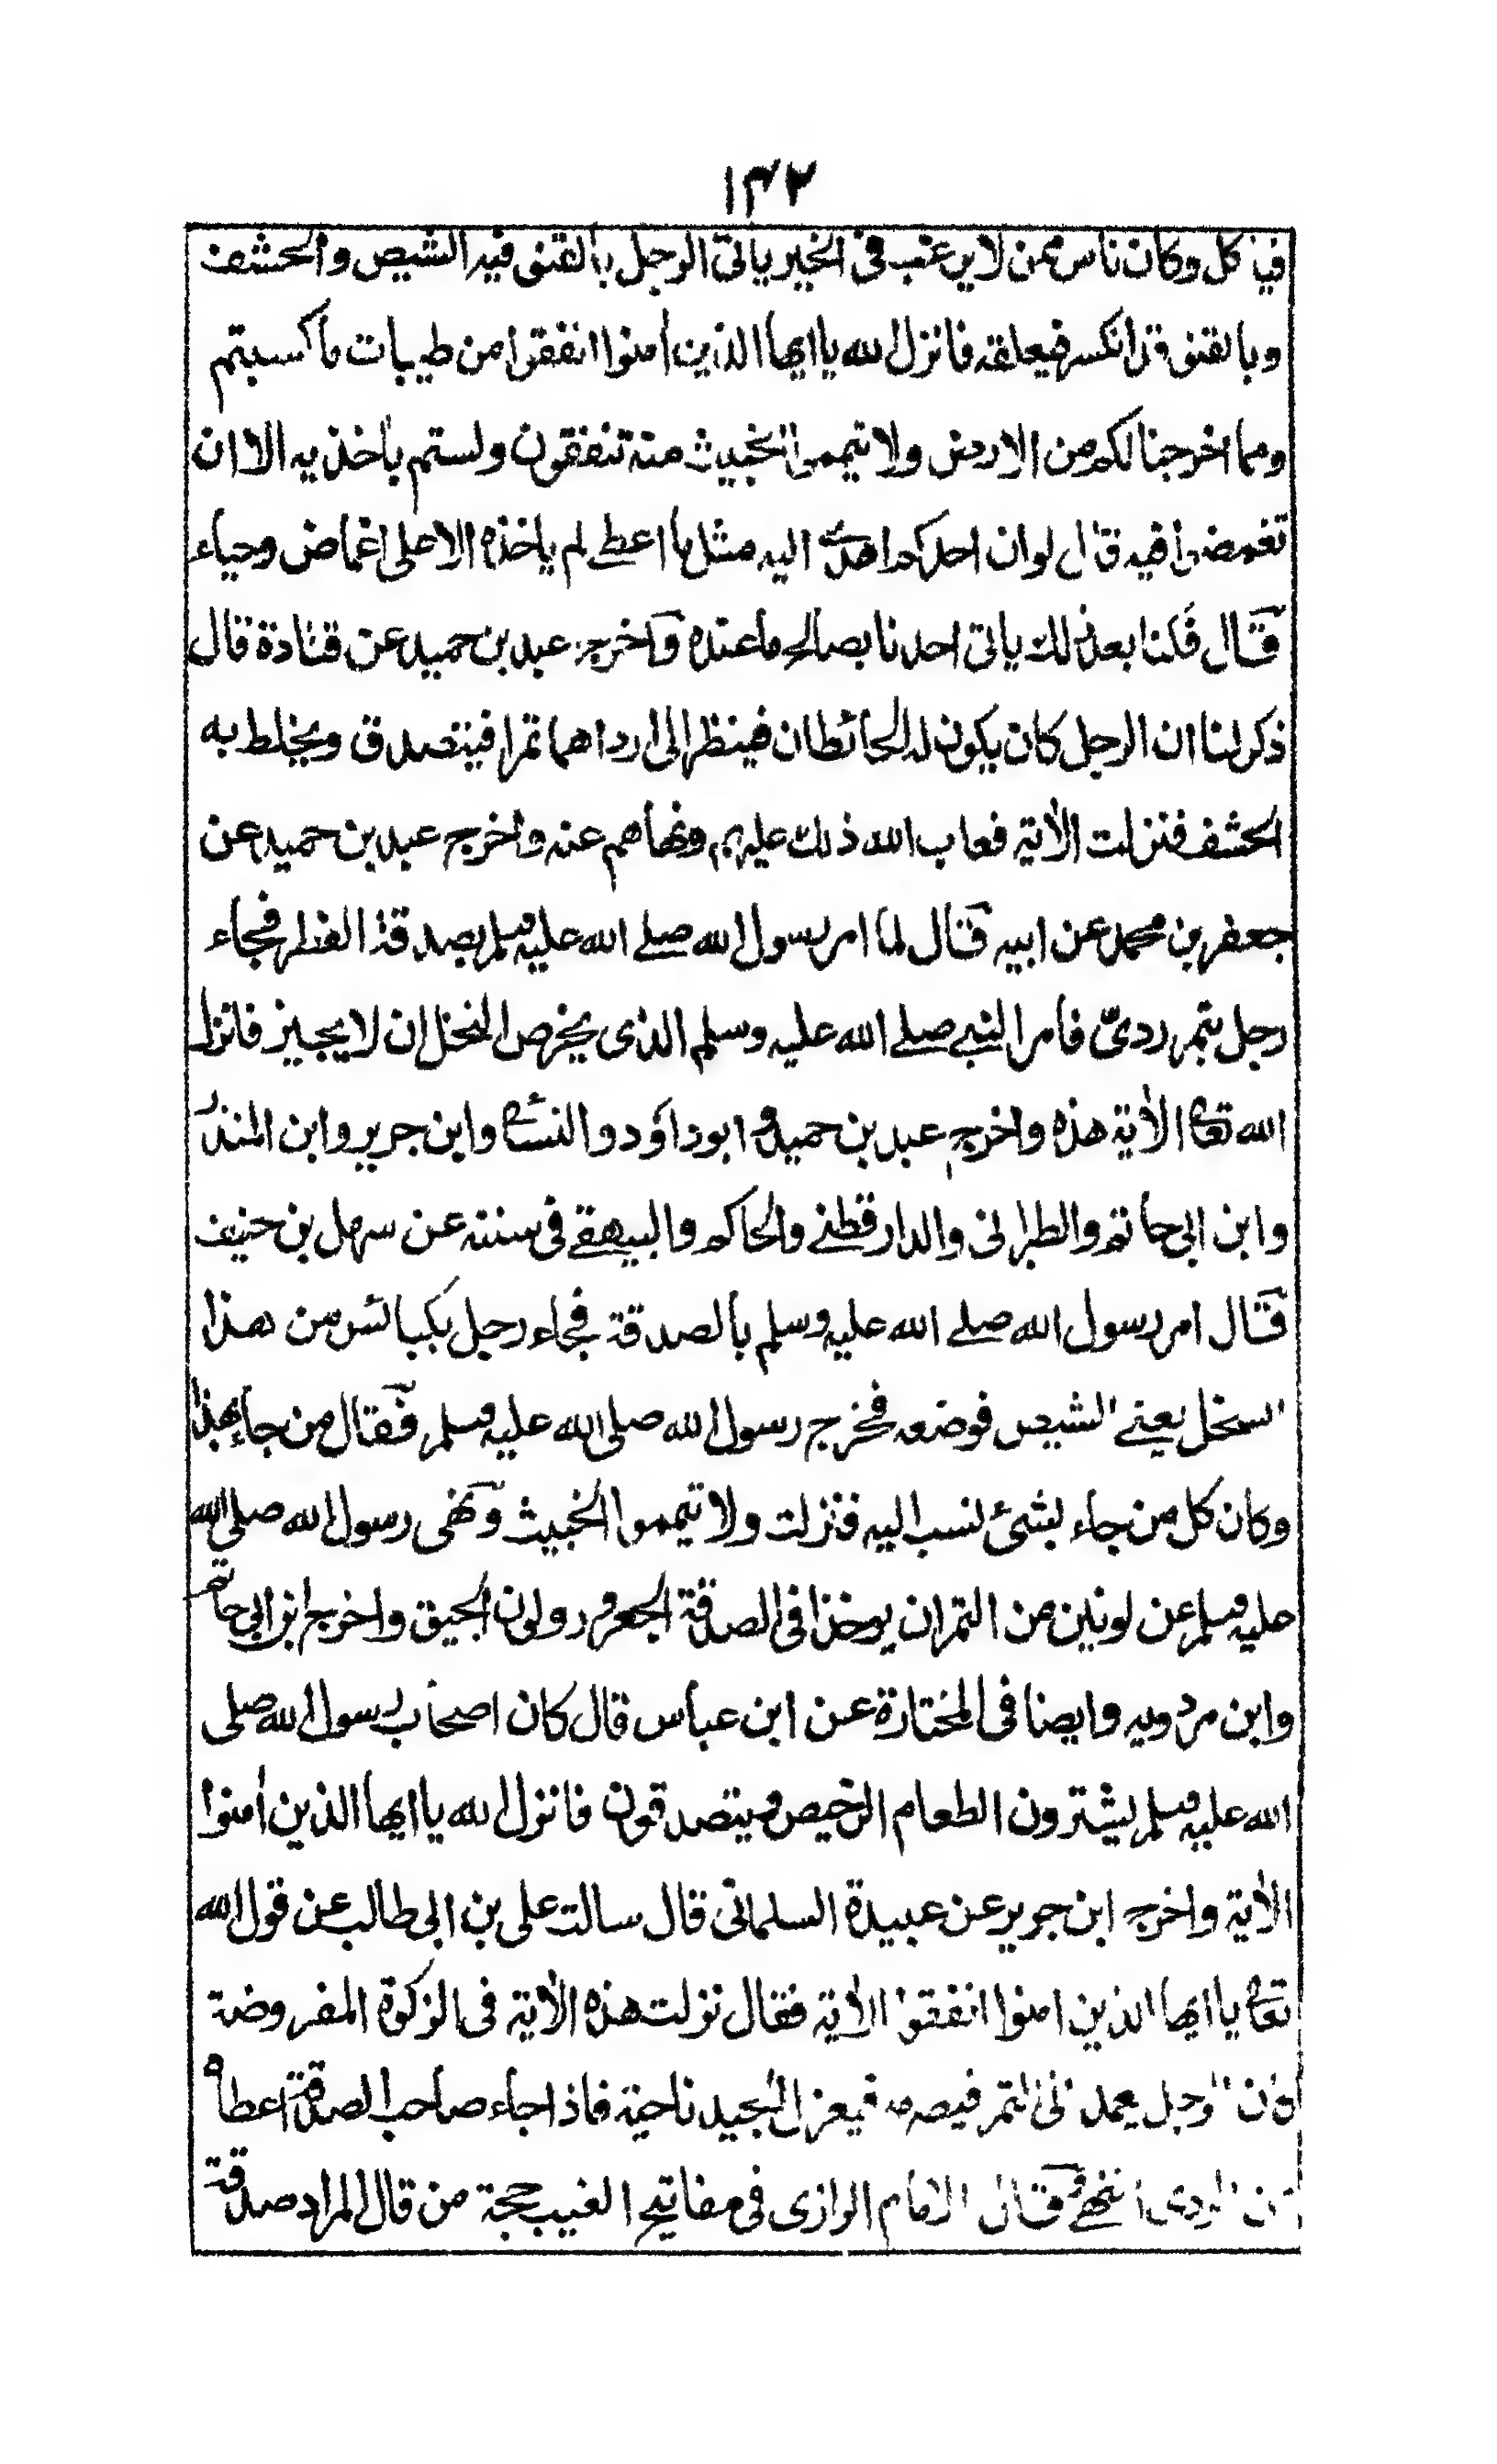 ١٤٢
فياكل وكان ناس ممن لا يرغب فى الخير ياتى الرجل بالقنو فيه الشيص والحشف
وبالقنو قد انكسر فيعلقه فانزل الله يا ايها الذين اٰمنوا انفقوا من طيبات ما كسبتم
ومما اخرجنا لكم من الارض ولا تيمموا الخبيث منه تنفقون ولستم باٰخذيه الا ان
تغمضوا فيه قال لو ان احدكم اهدى اليه مثل ما اعطے لم ياخذه الا على اغماض وحياء
قال فكنا بعد ذلك ياتى احدنا بصالح ما عنده واخرج عبد بن حميد عن قتادة قال
ذكر لنا ان الرجل كان يكون له الحائطان فينظر الى ارداهما تمرا فيتصدق ويخلط به
الحشف فنزلت الاٰية فعاب الله ذلك عليهم ونهاهم عنه واخرج عبد بن حميد عن
جعفر بن محمد عن ابيه قال لما امر رسول الله صلے الله عليه وسلم بصدقة الفطر فجاء
رجل بتمر ردئ فامر النبے صلے الله عليه وسلم الذى يخرص النخل ان لا يجيز فانزل
الله تعالى الاٰية هذه واخرج عبد بن حميد وابو داؤد والنسائى وابن جرير وابن المنذر
وابن ابى حاتم والطبرانى والدارقطنے والحاكم والبيهقے فى سننه عن سهل بن حنيف
قال امر رسول الله صلے الله عليه وسلم بالصدقة فجاء رجل بكبائس من هذا
السخل يعنے الشيص فوضعه فخرج رسول الله صلى الله عليه وسلم فقال من جاء بهذا
وكان كل من جاء بشئ نسب اليه فنزلت ولا تيمموا الخبيث ونهى رسول الله صلى الله
عليه وسلم عن لونين من التمر ان يوخذا فى الصدقة الجعرور ولون الحبيق واخرج ابن ابى حاتم
وابن مردويه وايضا فى المختارة عن ابن عباس قال كان اصحاب رسول الله صلى
الله عليه وسلم يشترون الطعام الرخيص ويتصدقون فانزل الله يا ايها الذين اٰمنوا
الاٰية واخرج ابن جرير عن عبيدة السلمانى قال سالت على بن ابى طالب عن قول الله
تعالى يا ايها الذين امنوا انفقوا الاٰية فقال نزلت هذه الاٰية فى الزكوة المفروضة
كان الرجل يعمد الى التمر فيصرمه فيعزل الجيد ناحية فاذا جاء صاحب الصدقة اعطاه
من الردى انتهى وقال الامام الرازى فى مفاتيح الغيب حجة من قال المراد صدقة